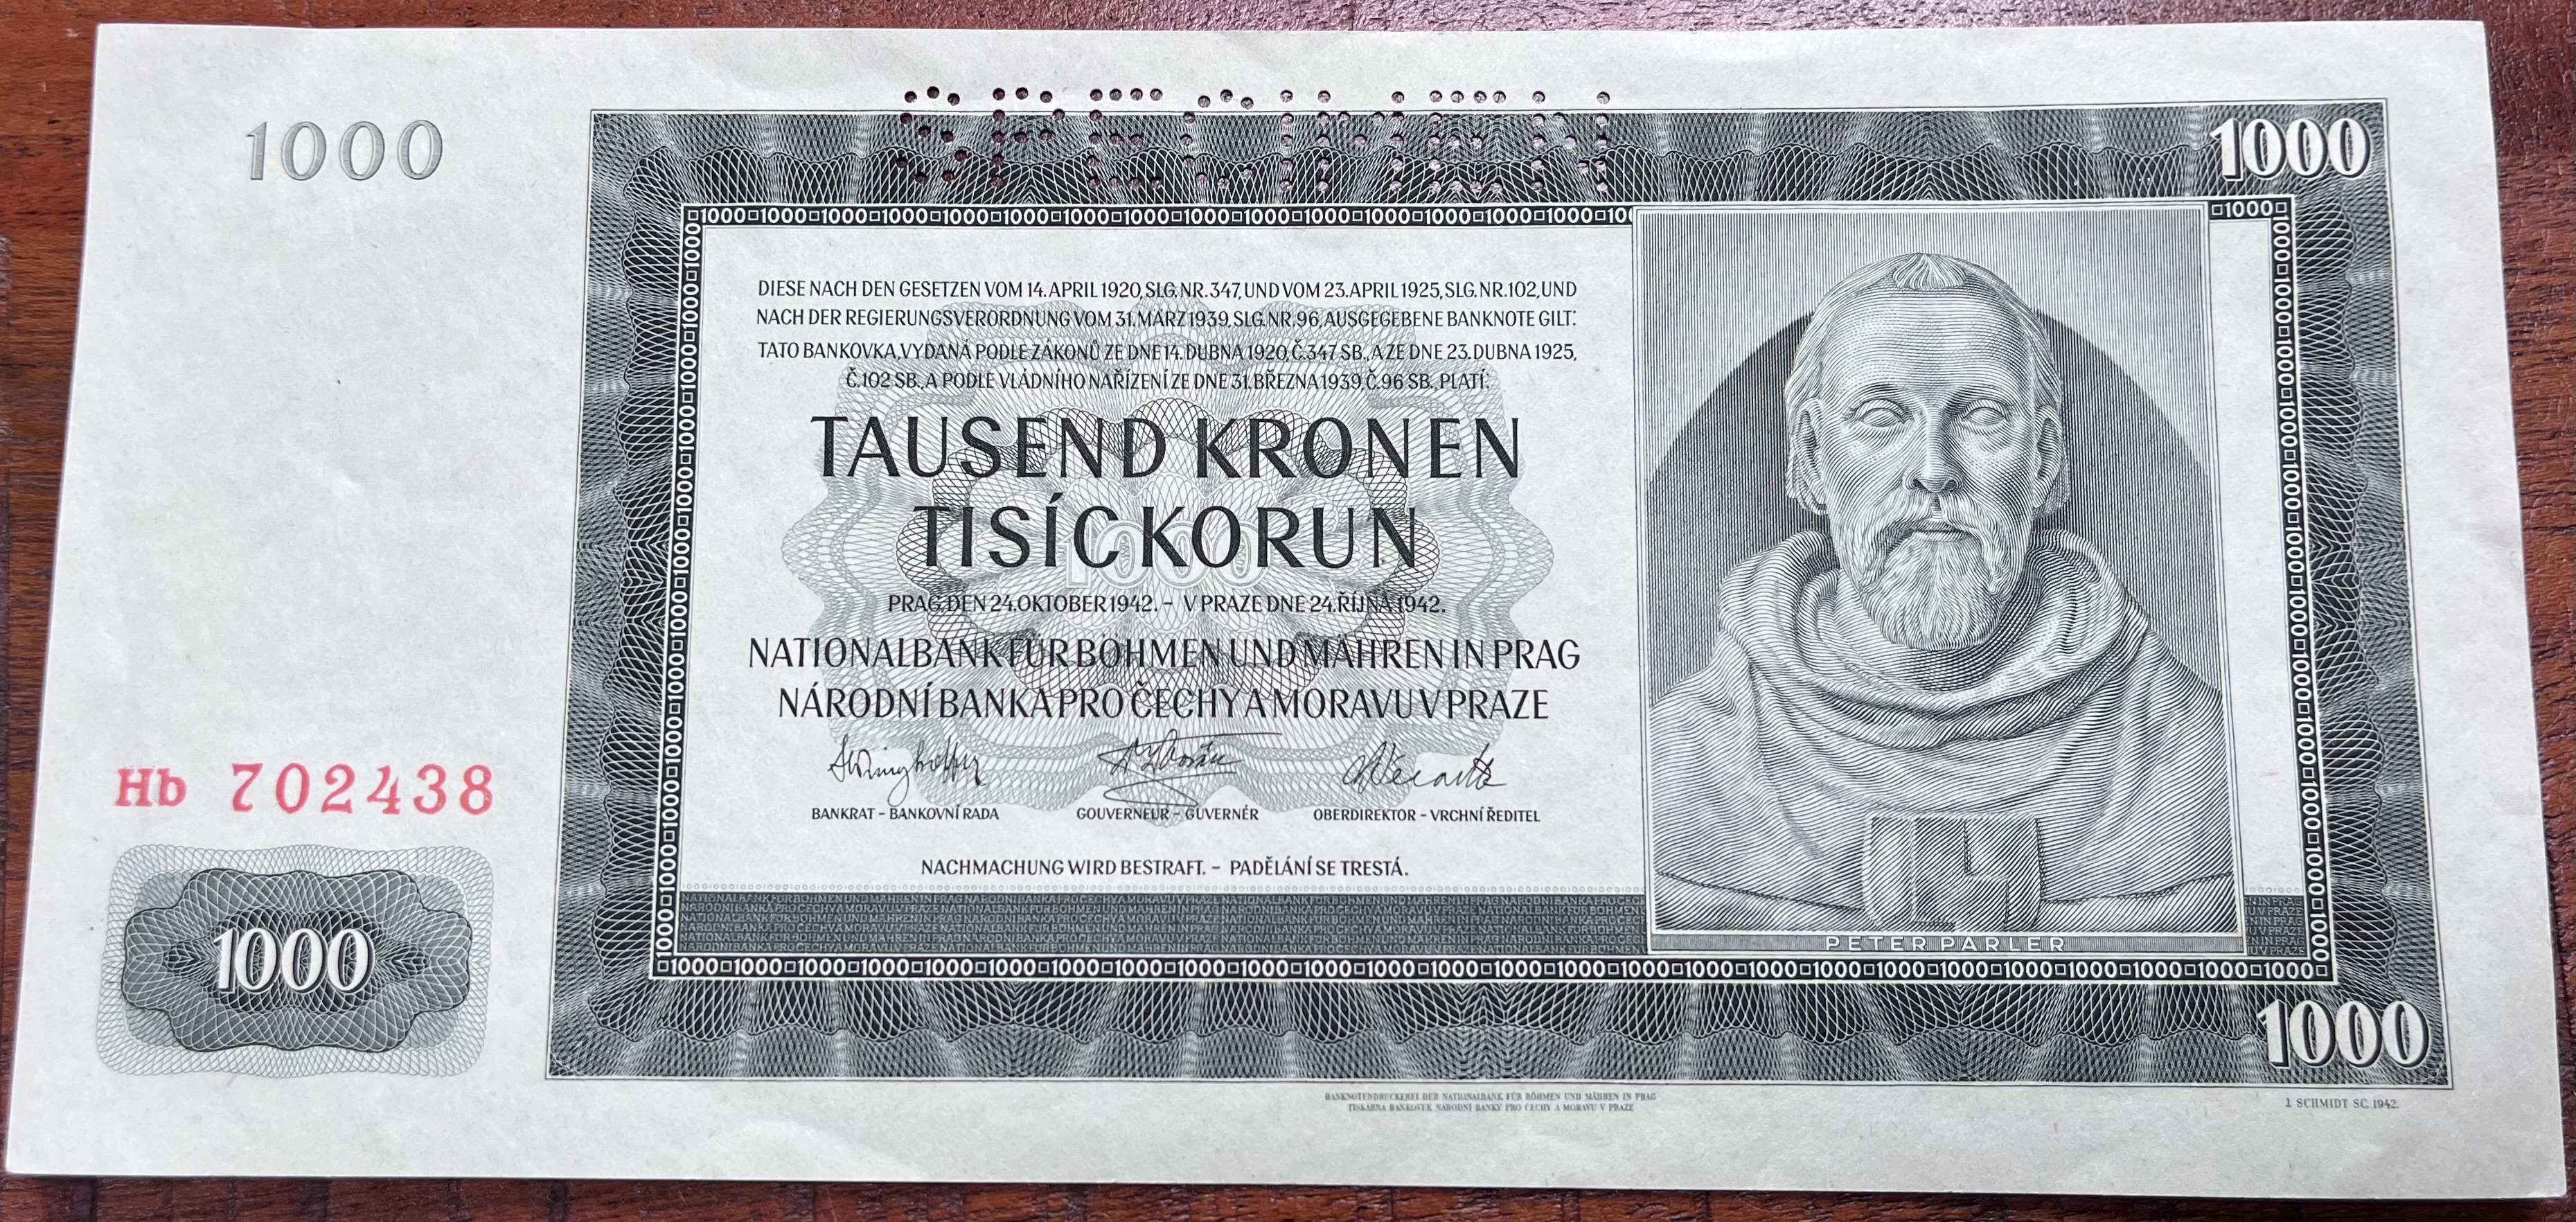 SPECIMEN
1000
1000
DIESE NACH DEN GESETZEN VOM 14. APRIL 1920, SLG. NR. 347, UND VOM 23. APRIL 1925, SLG. NR. 102, UND
NACH DER REGIERUNGSVERORDNUNG VOM 31. MÄRZ 1939, SLG. NR. 96, AUSGEGEBENE BANKNOTE GILT:
TATO BANKOVKA, VYDANÁ PODLE ZÁKONŮ ZE DNE 14. DUBNA 1920, Č. 347 SB., A ZE DNE 23. DUBNA 1925,
Č. 102 SB., A PODLE VLÁDNÍHO NAŘÍZENÍ ZE DNE 31. BŘEZNA 1939, Č. 96 SB., PLATÍ:
TAUSEND KRONEN
TISÍC KORUN
1000
PRAG, DEN 24. OKTOBER 1942. – V PRAZE DNE 24. ŘÍJNA 1942.
NATIONALBANK FÜR BÖHMEN UND MÄHREN IN PRAG
NÁRODNÍ BANKA PRO ČECHY A MORAVU V PRAZE
BANKRAT – BANKOVNÍ RADA
GOUVERNEUR – GUVERNÉR
OBERDIREKTOR – VRCHNÍ ŘEDITEL
NACHMACHUNG WIRD BESTRAFT. – PADĚLÁNÍ SE TRESTÁ.
Hb 702438
1000
PETER PARLER
1000
BANKNOTENDRUCKEREI DER NATIONALBANK FÜR BÖHMEN UND MÄHREN IN PRAG
TISKÁRNA BANKOVEK NÁRODNÍ BANKY PRO ČECHY A MORAVU V PRAZE
J. SCHMIDT SC. 1942.